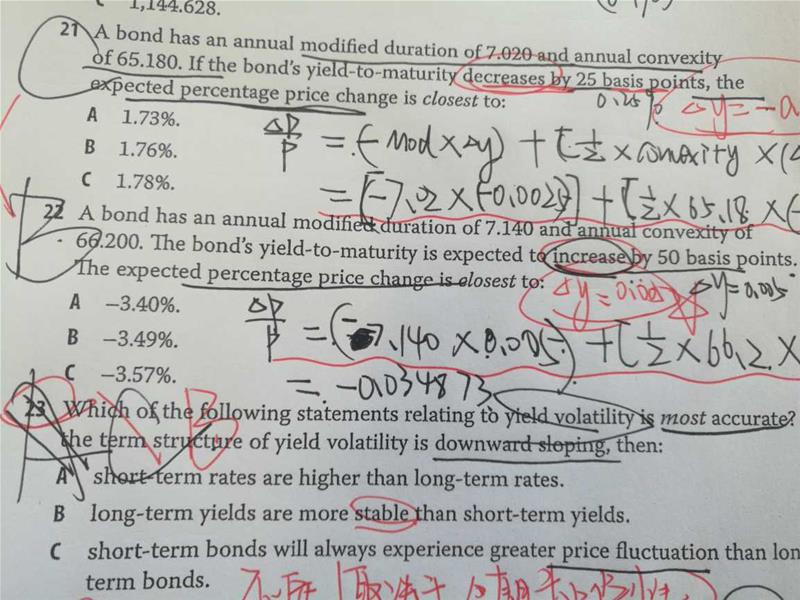 1,144.628.
21 A bond has an annual modified duration of 7.020 and annual convexity
of 65.180. If the bond's yield-to-maturity decreases by 25 basis points, the
expected percentage price change is closest to:
0.25%
Δy=-0
A 1.73%.
B 1.76%.
C 1.78%.
ΔP/P = (-Mod×Δy) + [½×convexity×(Δ
= [-7.02×(-0.0025)] + [½×65.18×(-
22 A bond has an annual modified duration of 7.140 and annual convexity of
66.200. The bond's yield-to-maturity is expected to increase by 50 basis points.
The expected percentage price change is closest to:
Δy=0.005
Δy=0.005
A −3.40%.
B −3.49%.
C −3.57%.
ΔP/P = (-7.140×0.005) + [½×66.2×
= -0.034873
23 Which of the following statements relating to yield volatility is most accurate?
the term structure of yield volatility is downward sloping, then:
B
A short-term rates are higher than long-term rates.
B long-term yields are more stable than short-term yields.
C short-term bonds will always experience greater price fluctuation than lon
term bonds.